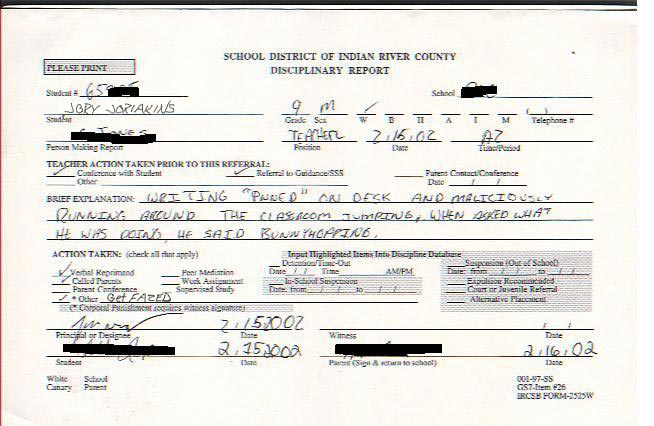 SCHOOL DISTRICT OF INDIAN RIVER COUNTY
PLEASE PRINT DISCIPLINARY REPORT
Student # 65 School
JORY JORIAKINS 9 M
Student Grade Sex W B H A I M Telephone #
JONES TEACHER 2,15,02
Person Making Report Position Date Time/Period
TEACHER ACTION TAKEN PRIOR TO THIS REFERRAL:
Conference with Student Referral to Guidance/SSS Parent Contact/Conference
Other Date / /
BRIEF EXPLANATION: WRITING "PWNED" ON DESK AND MALICIOUSLY
RUNNING AROUND THE CLASSROOM JUMPING, WHEN ASKED WHAT
HE WAS DOING, HE SAID BUNNYHOPPING.
ACTION TAKEN: (check all that apply) Input Highlighted Items Into Discipline Database
Detention/Time-Out Suspension (Out of School)
Verbal Reprimand Peer Mediation Date / / Time AM/PM Date: from / / to / /
Called Parents Work Assignment In-School Suspension Expulsion Recommended
Parent Conference Supervised Study Date: from / / to / / Court or Juvenile Referral
* Other Get FAZED Alternative Placement
(* Corporal Punishment requires witness signature)
2,15,2002 / /
Principal or Designee Date Witness Date
2,15,2002 2,16,02
Student Date Parent (Sign & return to school) Date
White School 001-97-SS
Canary Parent GS7-Item #26
IRCSB FORM-2525W